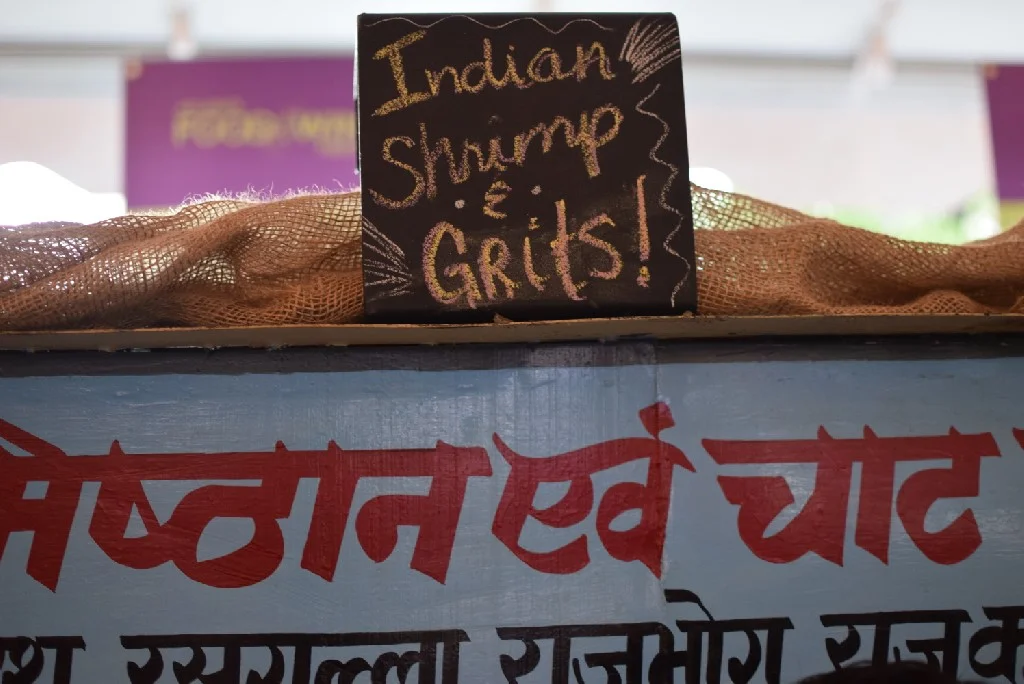 Indian
Shrimp
&
Grits!
मिष्ठान एवं चाट
रसगुल्ला राजभोग